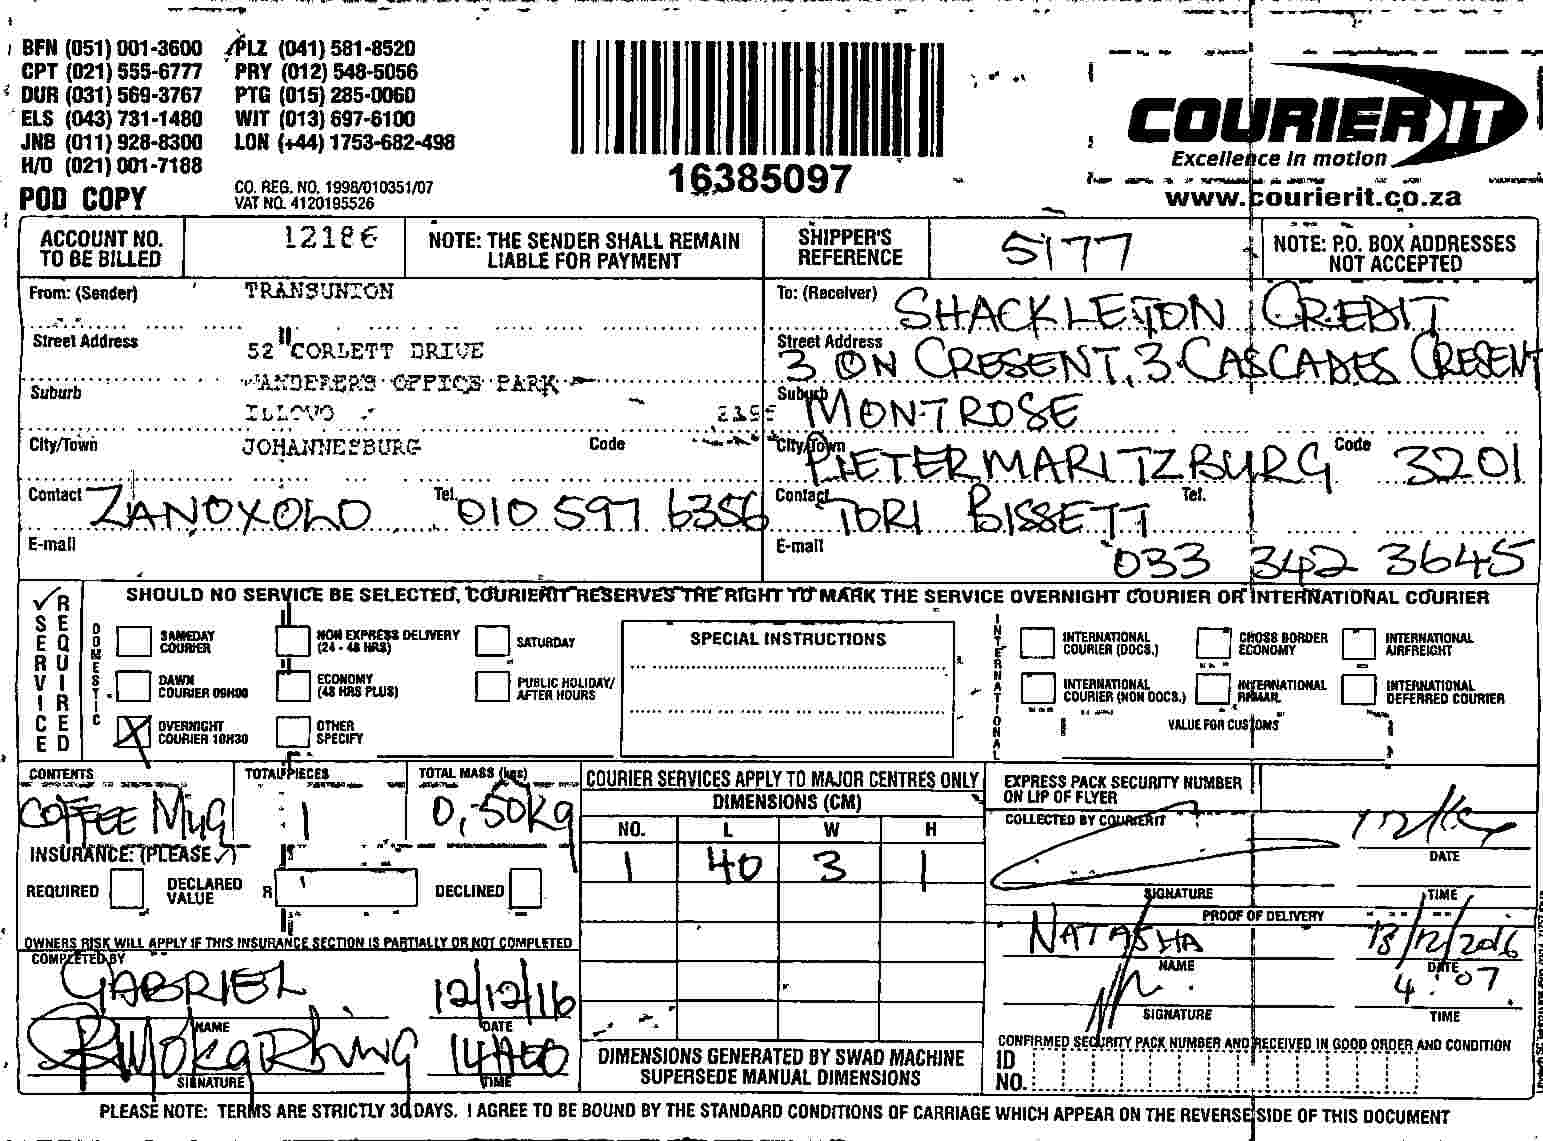 BFN (051) 001-3600 PLZ (041) 581-8520
CPT (021) 555-6777 PRY (012) 548-5056
DUR (031) 569-3767 PTG (015) 285-0060
ELS (043) 731-1480 WIT (013) 697-6100
JNB (011) 928-8300 LON (+44) 1753-682-498
H/O (021) 001-7188
POD COPY
CO. REG. NO. 1998/010351/07
VAT NO. 4120195526
16385097
COURIER IT
Excellence in motion
www.courierit.co.za
ACCOUNT NO. TO BE BILLED
12186
NOTE: THE SENDER SHALL REMAIN LIABLE FOR PAYMENT
SHIPPER'S REFERENCE
5177
NOTE: P.O. BOX ADDRESSES NOT ACCEPTED
From: (Sender) TRANSUNION
Street Address 52 CORLETT DRIVE
WANDERERS OFFICE PARK
Suburb ILLOVO
City/Town JOHANNESBURG Code
Contact ZANOXOLO Tel. 010 597 6356
E-mail
To: (Receiver) SHACKLETON CREDIT
Street Address 3 ON CRESENT, 3 CASCADES CRESENT
Suburb MONTROSE
City/Town PIETERMARITZBURG Code 3201
Contact TORI BISSETT Tel.
E-mail 033 342 3645
SERVICE REQUIRED
SHOULD NO SERVICE BE SELECTED, COURIERIT RESERVES THE RIGHT TO MARK THE SERVICE OVERNIGHT COURIER OR INTERNATIONAL COURIER
DOMESTIC
SAMEDAY COURIER
NON EXPRESS DELIVERY (24 - 48 HRS)
SATURDAY
DAWN COURIER 09H00
ECONOMY (48 HRS PLUS)
PUBLIC HOLIDAY/ AFTER HOURS
OVERNIGHT COURIER 10H30
OTHER SPECIFY
SPECIAL INSTRUCTIONS
INTERNATIONAL
INTERNATIONAL COURIER (DOCS.)
CROSS BORDER ECONOMY
INTERNATIONAL AIRFREIGHT
INTERNATIONAL COURIER (NON DOCS.)
INTERNATIONAL
INTERNATIONAL DEFERRED COURIER
VALUE FOR CUSTOMS
CONTENTS COFFEE MUG
TOTAL PIECES 1
TOTAL MASS (kgs) 0,50kg
INSURANCE: (PLEASE ✓)
REQUIRED
DECLARED VALUE R
DECLINED
OWNERS RISK WILL APPLY IF THIS INSURANCE SECTION IS PARTIALLY OR NOT COMPLETED
COMPLETED BY
GABRIEL 12/12/16
NAME DATE
14H00
SIGNATURE TIME
COURIER SERVICES APPLY TO MAJOR CENTRES ONLY
DIMENSIONS (CM)
NO. L W H
1 40 3 1
DIMENSIONS GENERATED BY SWAD MACHINE SUPERSEDE MANUAL DIMENSIONS
EXPRESS PACK SECURITY NUMBER ON LIP OF FLYER
COLLECTED BY COURIERIT
DATE
SIGNATURE TIME
PROOF OF DELIVERY
NATASHA 13/12/2016
NAME DATE
4:07
SIGNATURE TIME
CONFIRMED SECURITY PACK NUMBER AND RECEIVED IN GOOD ORDER AND CONDITION
ID NO.
PLEASE NOTE: TERMS ARE STRICTLY 30 DAYS. I AGREE TO BE BOUND BY THE STANDARD CONDITIONS OF CARRIAGE WHICH APPEAR ON THE REVERSE SIDE OF THIS DOCUMENT